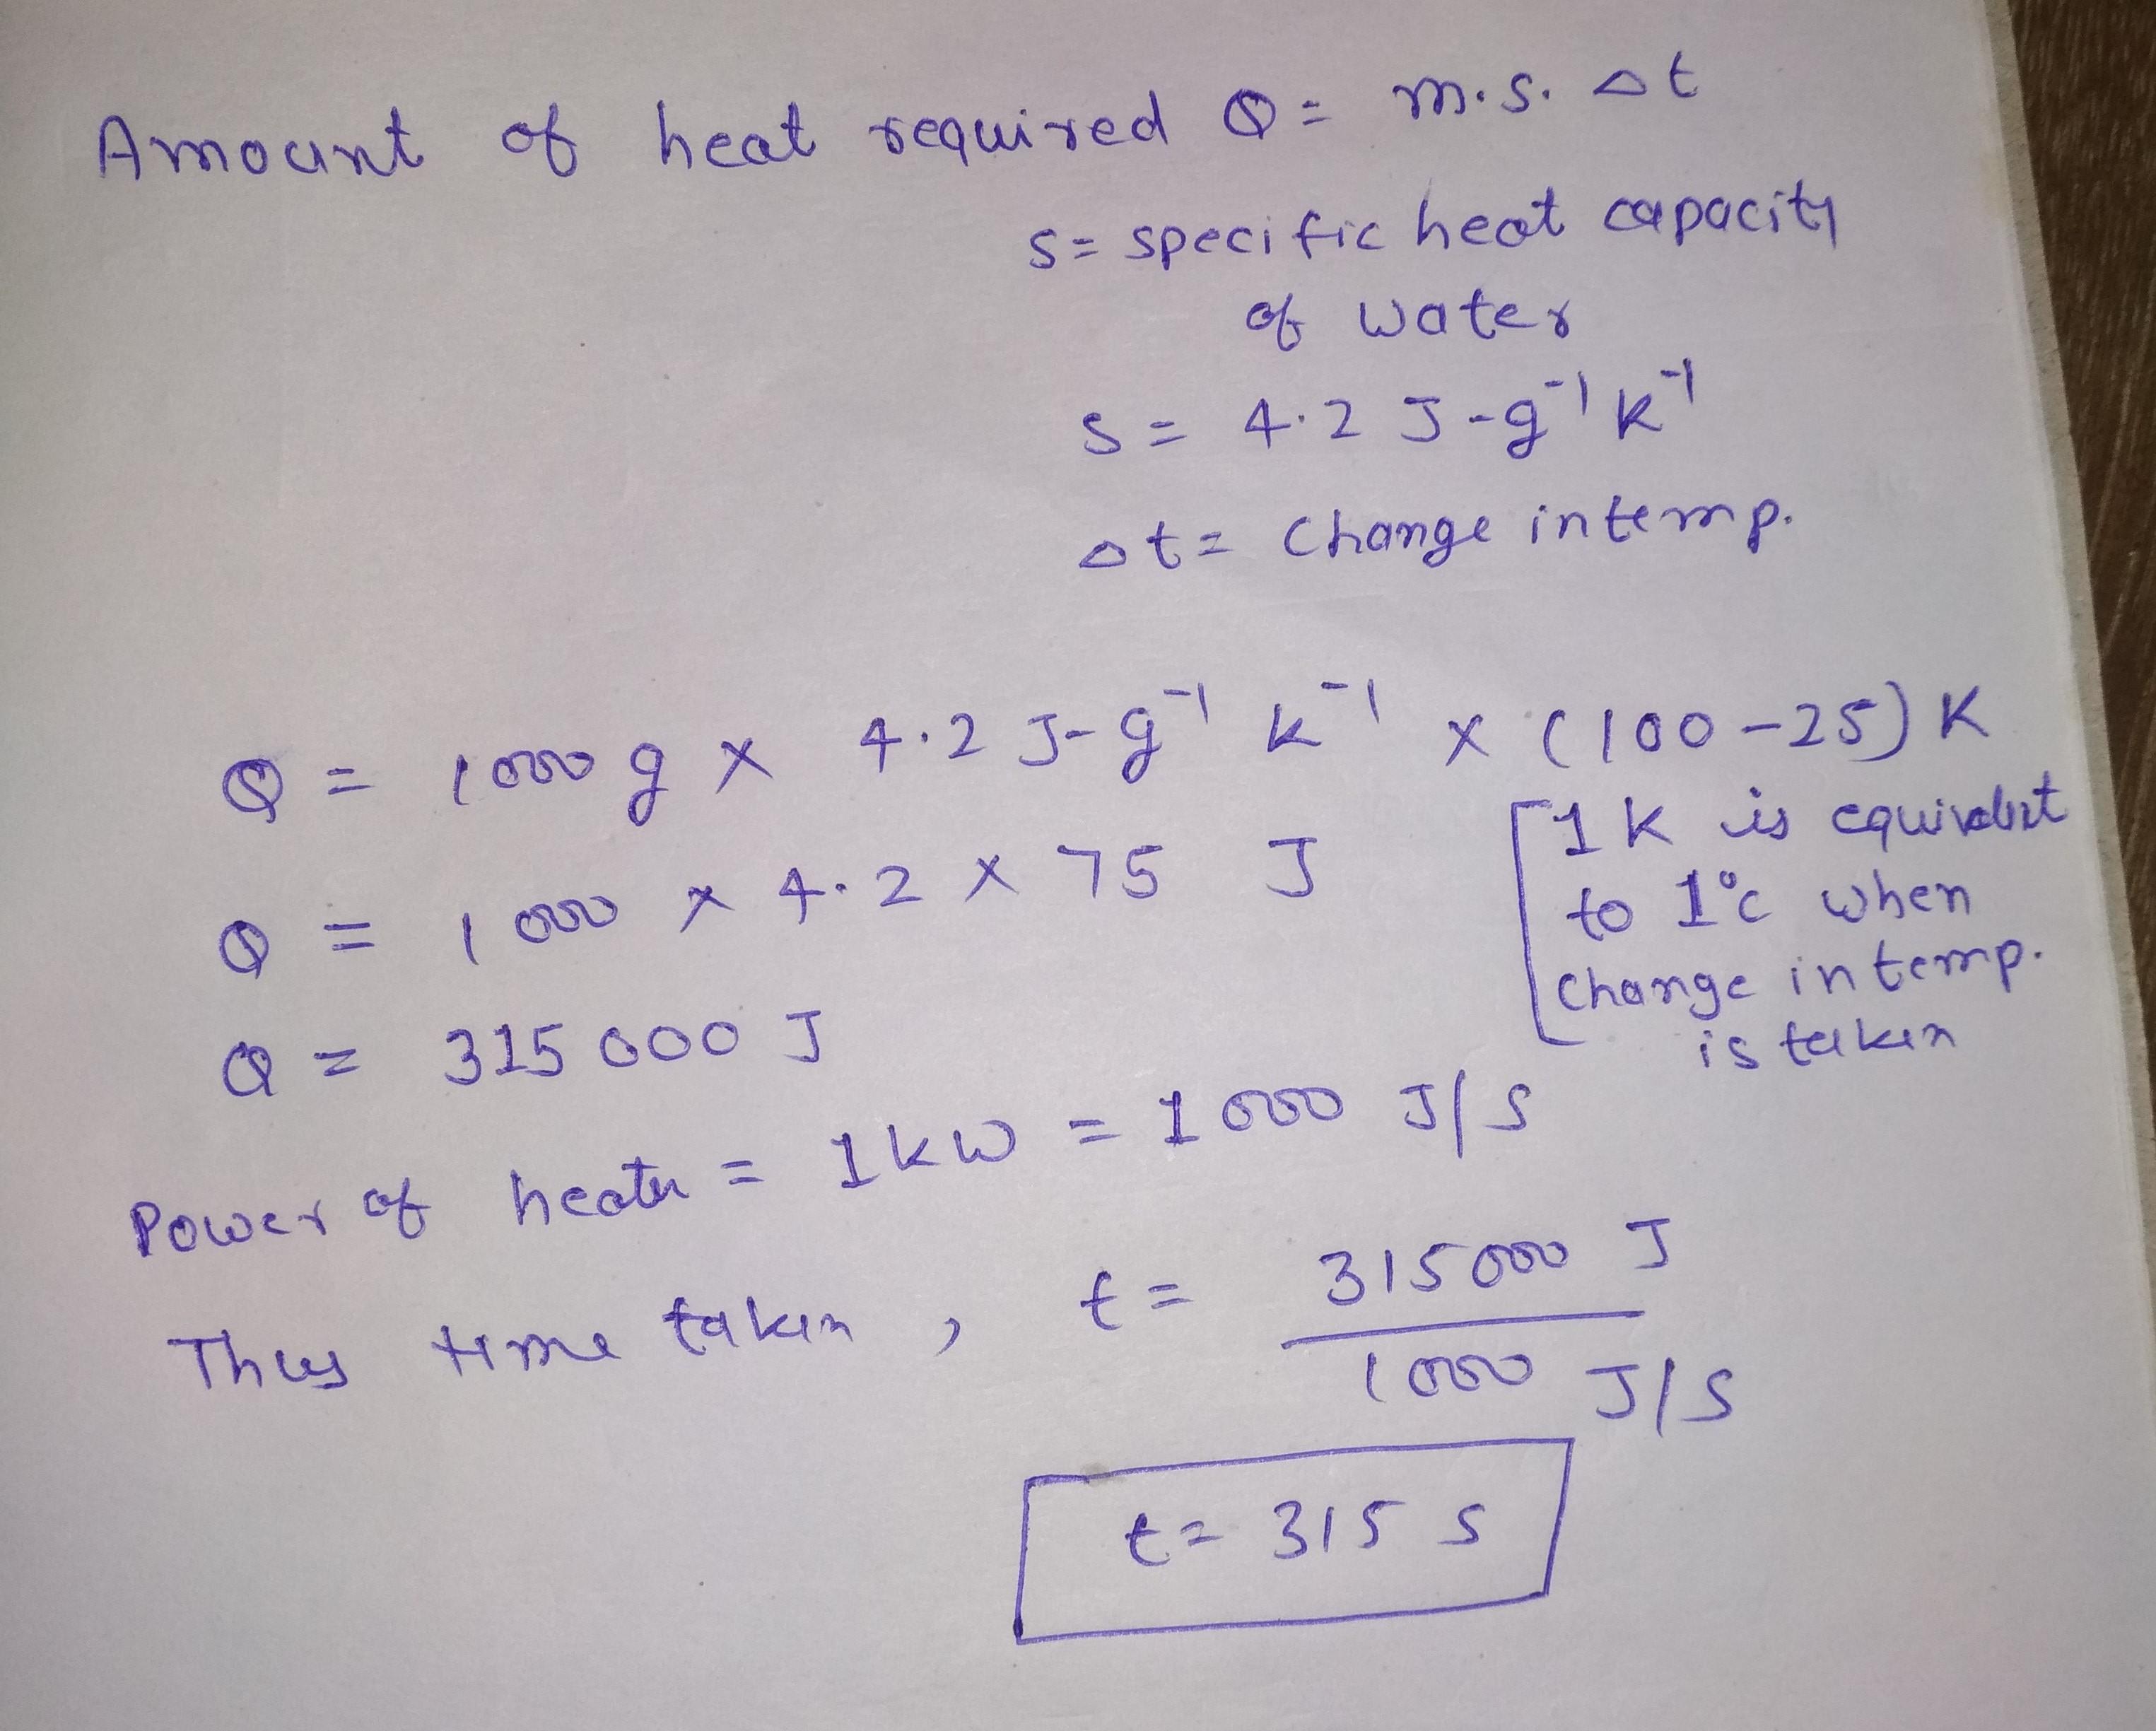 Amount of heat required Q = m.s. Δt
S = specific heat capacity
of water
S = 4.2 J-g⁻¹ K⁻¹
Δt = Change in temp.
Q = 1000 g x 4.2 J-g⁻¹ K⁻¹ x (100-25) K
[1 K is equivalent
Q = 1000 x 4.2 x 75 J
to 1°c when
change in temp.
is taken
Q = 315000 J
Power of heater = 1 kW = 1000 J/s
Thus time taken, t = 315000 J
1000 J/S
t = 315 s